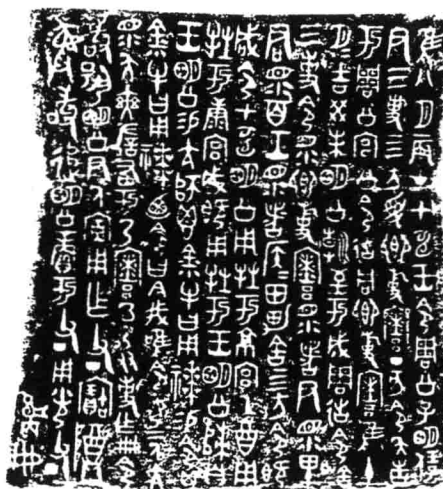 隹八月辰才甲申王令周公子明保
尹三事四方受卿事寮丁亥令夨告
于周公宮公令𢓊同卿事寮隹十月
月吉癸未明公朝至于成周𢓊令舍
三事令眔卿事寮眔者尹眔里
君眔百工眔者侯侯田男舍四方令既
咸令甲申明公用牲于京宮乙酉用
牲于康宮咸既用牲于王明公歸自
王明公易亢師鬯金小牛曰用𥛱易令鬯
金小牛曰用𥛱廼令曰今我唯令女二人亢
眔夨奭左右于乃寮以乃友事乍冊令
敢揚明公尹人宁用乍父丁寶尊彝
敢追明公賞于父丁用光父丁
冊